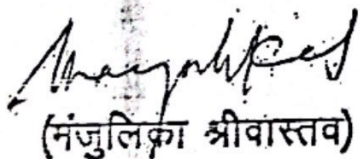 (मंजुलिका श्रीवास्तव)